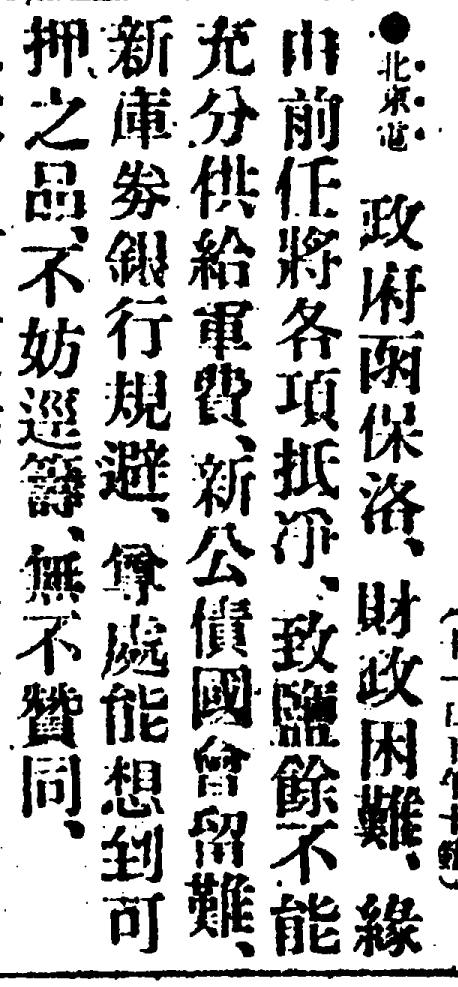 ●北京電　政府函保洛、財政困難、緣
由前任將各項抵淨、致鹽餘不能
充分供給軍費、新公債國會留難、
新庫券銀行規避、尊處能想到可
押之品、不妨逕籌、無不贊同、